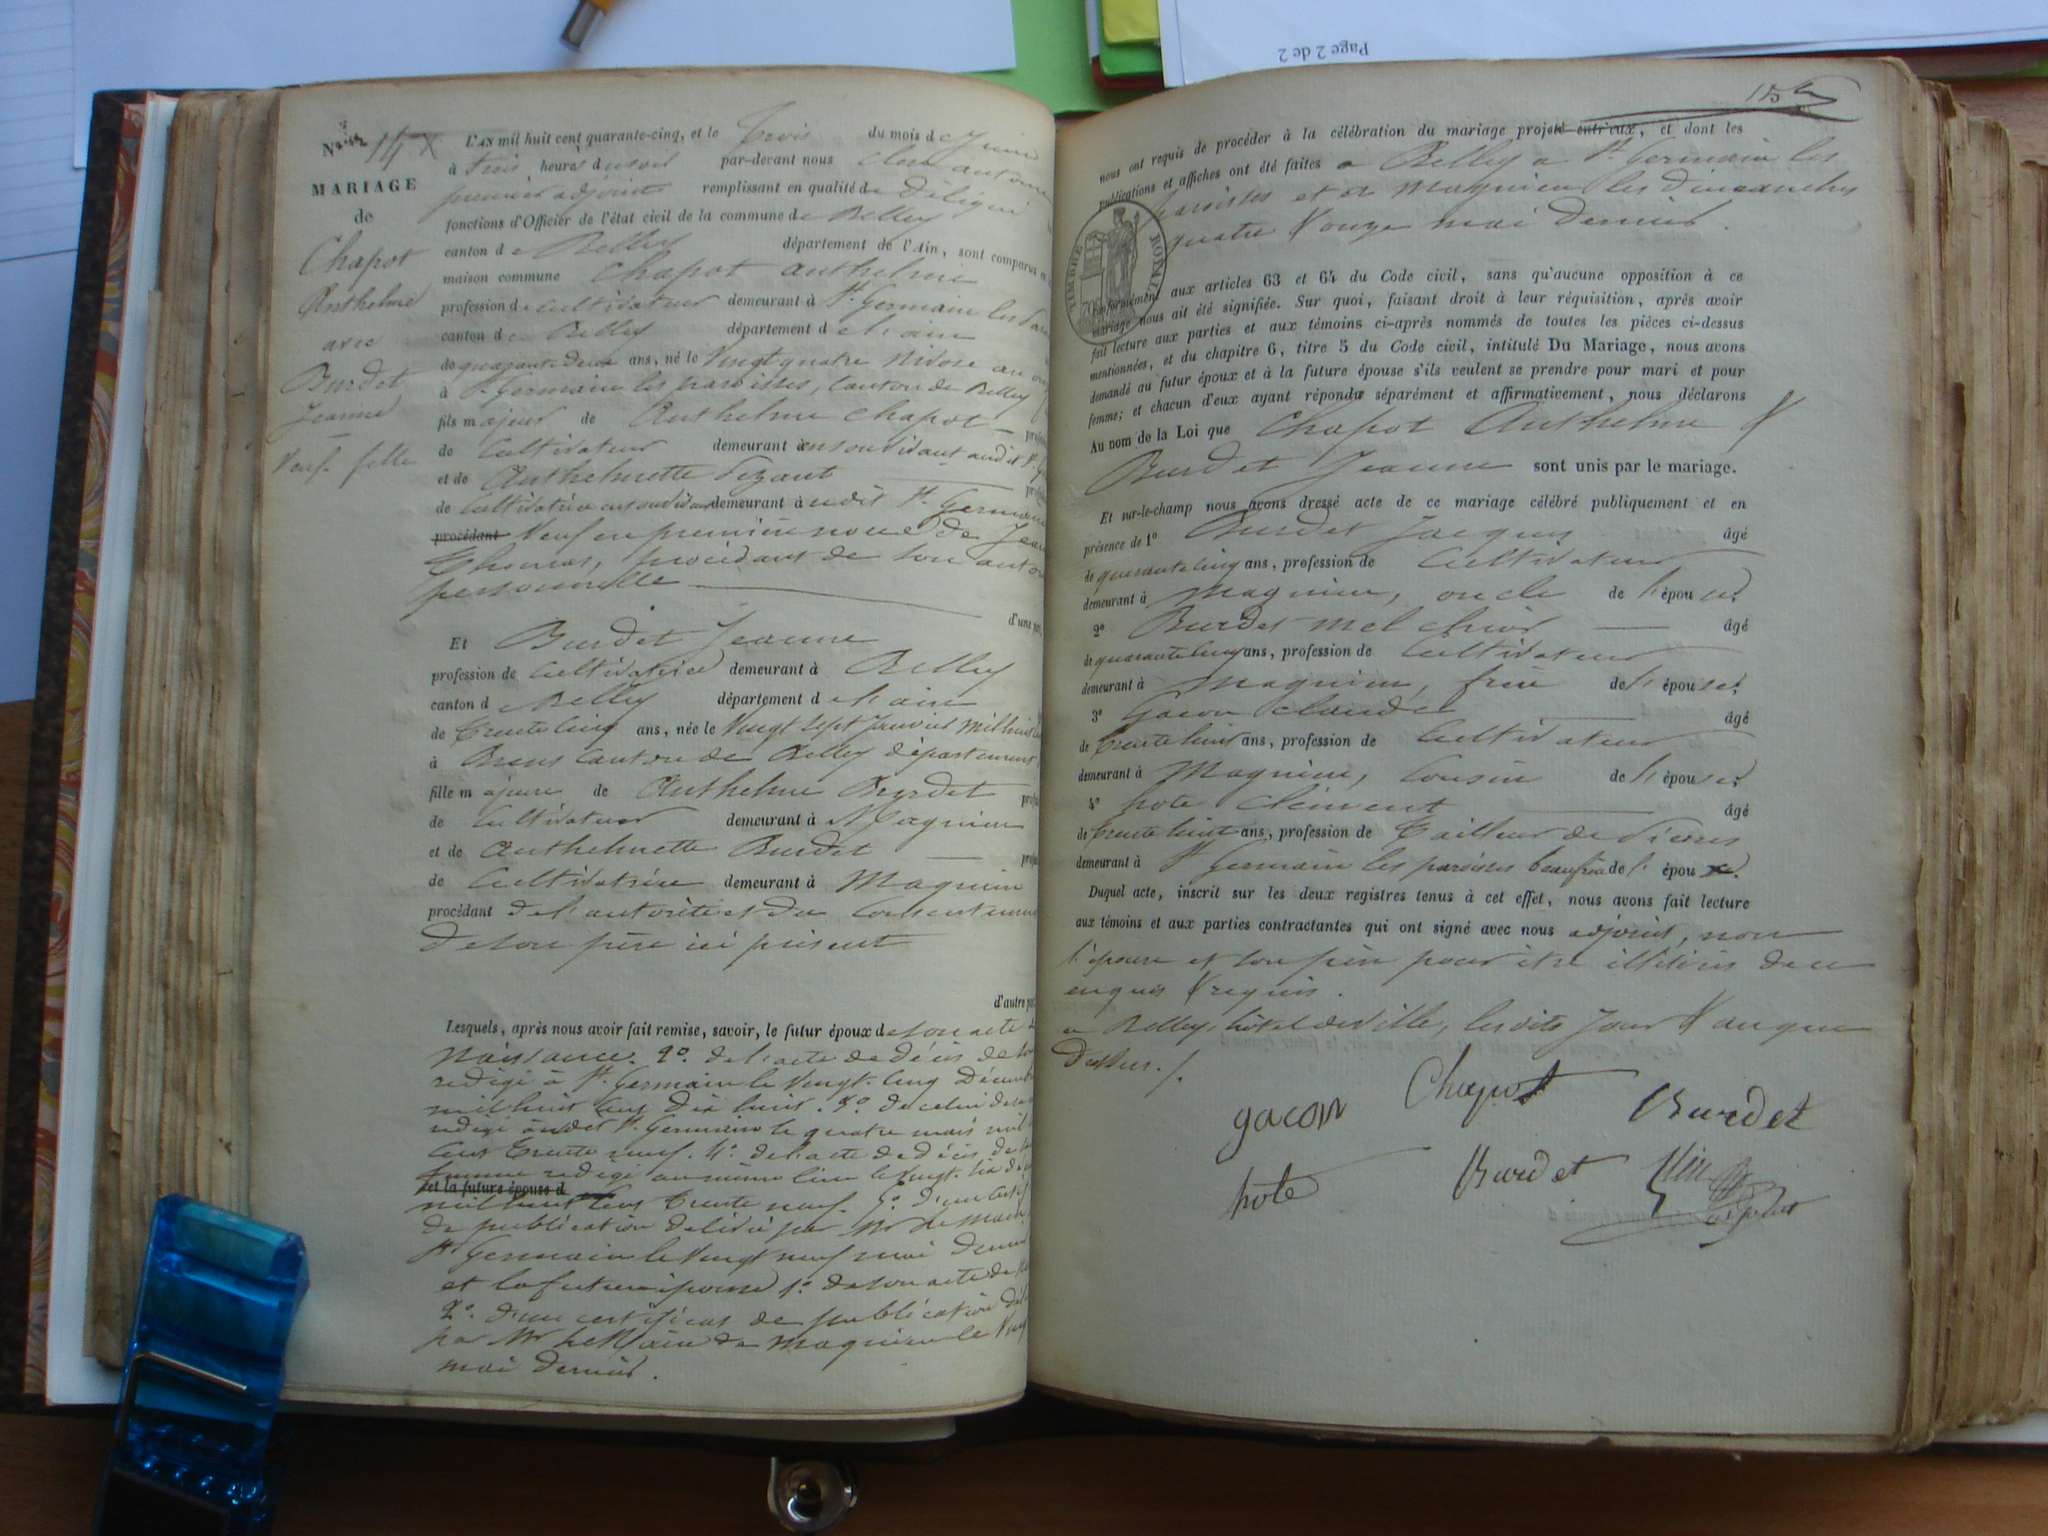 Page 2 de 2
N° 14
MARIAGE
de
Chapot
Anthelme
avec
Burdet
Jeanne
Veuf fille
L'AN mil huit cent quarante-cinq, et le trois du mois de Juin
à trois heures du soir par-devant nous
premier adjoint remplissant en qualité de Délégué
fonctions d'Officier de l'état civil de la commune de Belley
canton de Belley département de l'Ain, sont comparus
maison commune Chapot Anthelme
profession de cultivateur demeurant à St. Germain les
canton de Belley département de l'ain
de quarante deux ans, né le Vingt quatre Nivose an
à St. Germain les paroisses, Canton de Belley
fils majeur de Anthelme Chapot
de Cultivateur demeurant en son vivant audit St.
et de Anthelmette
de Cultivatrice en son vivant demeurant audit St. Germain
procédant Veuf en première noce de
Thomas, procédant de son
personnelle
d'une
Et Burdet Jeanne
profession de Cultivatrice demeurant à Belley
canton de Belley département de l'ain
de trente cinq ans, née le Vingt sept Janvier mil huit
à Brens Canton de Belley département
fille majeure de Anthelme Burdet
de Cultivateur demeurant à Magnieu
et de Anthelmette Burdet
de Cultivatrice demeurant à Magnieu
procédant de l'autorité et du Consentement
de son père ici présent
d'autre
Lesquels, après nous avoir fait remise, savoir, le futur époux de son acte
Naissance. 2°. de l'acte de décès de
redigé à St. Germain le Vingt-Cinq Décembre
mil huit Cent dix huit. 3°. de celui de
redigé audit St. Germain le quatre mars mil
Cent trente neuf. 4°. de l'acte de décès de
femme redigé au même lieu le Vingt
et la future épouse d
mil huit Cent trente neuf. 5°. d'un
de publication délivré par Mr le Maire
St. Germain le Vingt neuf mai dernier
et la future épouse 1°. de son acte de
2°. d'un certificat de publication
par Mr le Maire de Magnieu le
mai dernier.
nous ont requis de procéder à la célébration du mariage projeté entr'eux, et dont les
publications et affiches ont été faites a Belley a St. Germain les
Paroisses et a Magnieu les dimanches
quatre & onze mai dernier.
TIMBRE ROYAL
conformément aux articles 63 et 64 du Code civil, sans qu'aucune opposition à ce
mariage nous ait été signifiée. Sur quoi, faisant droit à leur réquisition, après avoir
fait lecture aux parties et aux témoins ci-après nommés de toutes les pièces ci-dessus
mentionnées, et du chapitre 6, titre 5 du Code civil, intitulé Du Mariage, nous avons
demandé au futur époux et à la future épouse s'ils veulent se prendre pour mari et pour
femme; et chacun d'eux ayant répondu séparément et affirmativement, nous déclarons
Au nom de la Loi que Chapot Anthelme &
Burdet Jeanne sont unis par le mariage.
Et sur-le-champ nous avons dressé acte de ce mariage célébré publiquement et en
présence de 1° Burdet Jacques âgé
de quarante cinq ans, profession de Cultivateur
demeurant à Magnieu, oncle de l'épouse.
2° Burdet Melchior âgé
de quarante cinq ans, profession de Cultivateur
demeurant à Magnieu, frère de l'épouse.
3° Gacon Claude âgé
de trente huit ans, profession de Cultivateur
demeurant à Magnieu, Cousin de l'épouse.
4° hote Clément âgé
de trente huit ans, profession de Tailleur de Pierres
demeurant à St. Germain les paroisses beaufrère de l'époux.
Duquel acte, inscrit sur les deux registres tenus à cet effet, nous avons fait lecture
aux témoins et aux parties contractantes qui ont signé avec nous adjoint, non
l'épouse et son père pour être illitérés de ce
enquis & requis.
a Belley, hôtel de ville, lesdits jour & an que
dessus./.
gacon Chapot Burdet
hote Burdet